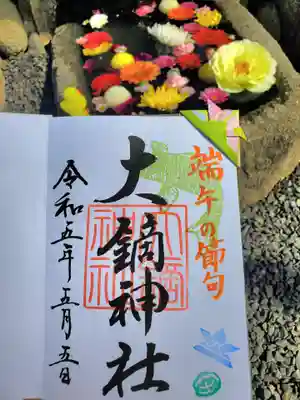 端午の節句
大鏑神社
令和五年五月五日